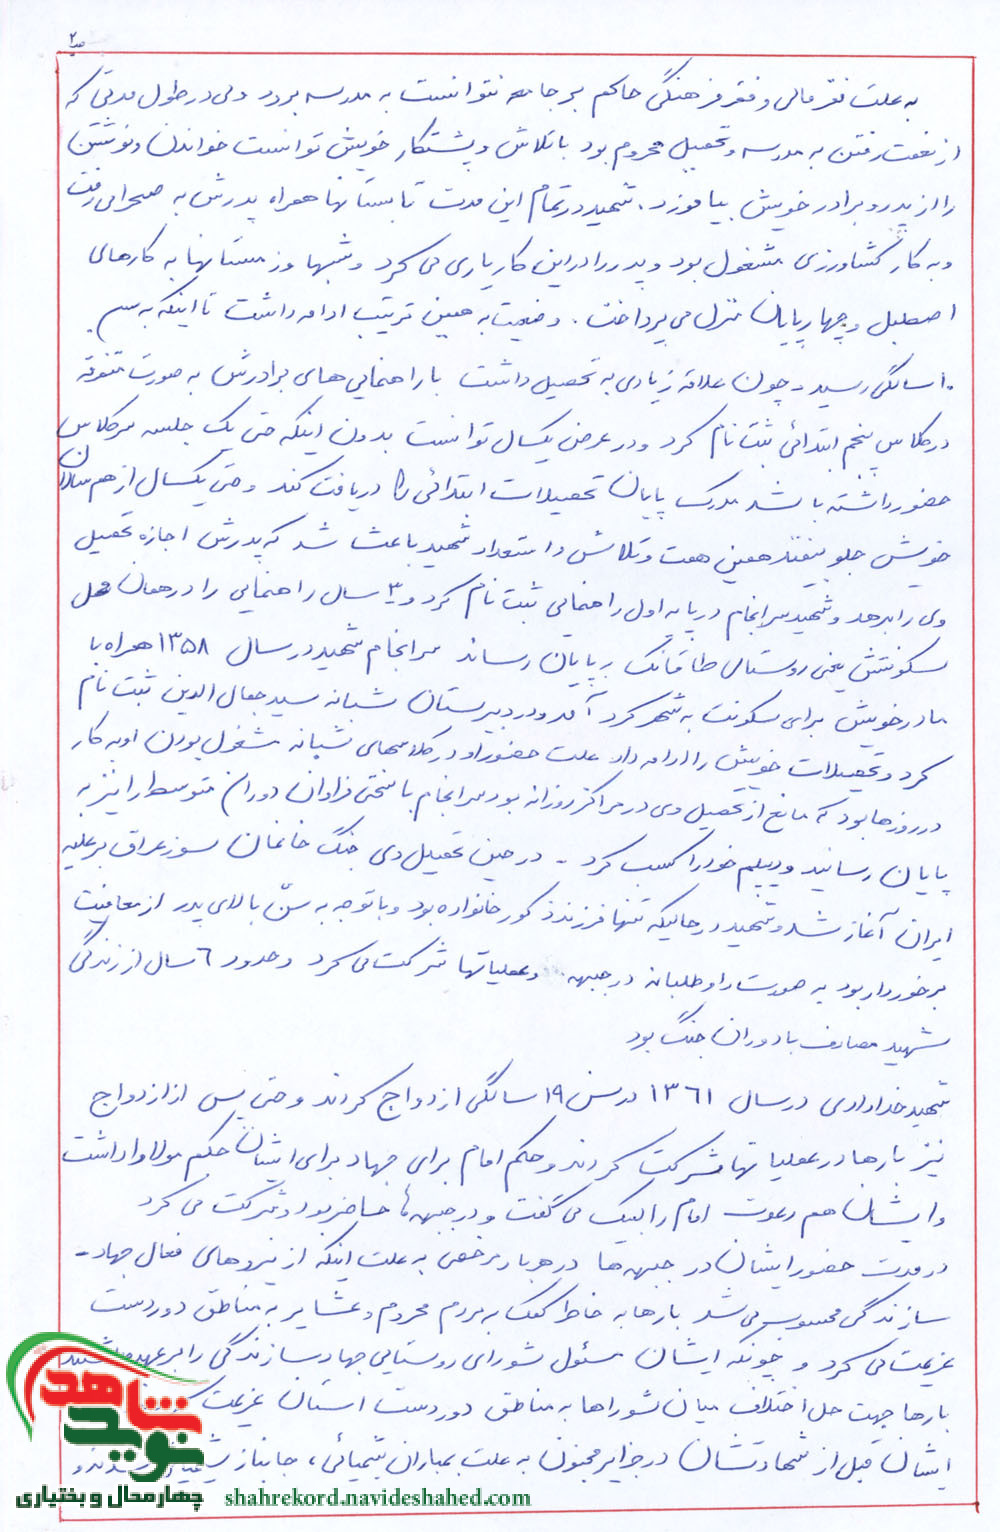 صـ۲
به علت فقر مالی و فقر فرهنگی حاکم بر جامعه نتوانست به مدرسه برود ولی در طول مدتی که
از نعمت رفتن به مدرسه و تحصیل محروم بود با تلاش و پشتکار خویش توانست خواندن و نوشتن
را از پدر و برادر خویش بیاموزد. شهید در تمام این مدت تابستانها همراه پدرش به صحرا می رفت
و به کار کشاورزی مشغول بود و پدر را در این کار یاری می کرد و شبها و زمستانها به کارهای
اصطبل و چهارپایان منزل می پرداخت. وضعیت به همین ترتیب ادامه داشت تا اینکه به سن
۱۰ سالگی رسید و چون علاقه زیادی به تحصیل داشت با راهنمایی های برادرش به صورت متفرقه
در کلاس پنجم ابتدائی ثبت نام کرد و در عرض یکسال توانست بدون اینکه حتی یک جلسه سر کلاس
حضور داشته باشد مدرک پایان تحصیلات ابتدائی را دریافت کند و حتی یکسال از هم سالان
خویش جلو بیفتد همین همت و تلاش و استعداد شهید باعث شد که پدرش اجازه تحصیل
وی را بدهد و شهید سرانجام در پایه اول راهنمایی ثبت نام کرد و ۳ سال راهنمایی را در همان محل
سکونتش یعنی روستای طاقانک به پایان رساند سرانجام شهید در سال ۱۳۵۸ همراه با
مادر خویش برای سکونت به شهرکرد آمد و در دبیرستان شبانه سید جمال الدین ثبت نام
کرد و تحصیلات خویش را ادامه داد علت حضور او در کلاسهای شبانه مشغول بودن او به کار
در روزها بود که مانع از تحصیل وی در مراکز روزانه بود سرانجام با سختی فراوان دوران متوسطه را نیز به
پایان رسانید و دیپلم خود را کسب کرد - در حین تحصیل وی جنگ خانمان سوز عراق بر علیه
ایران آغاز شد و شهید در حالیکه تنها فرزند ذکور خانواده بود و با توجه به سنّ بالای پدر از معافیت
برخوردار بود به صورت داوطلبانه در جبهه و عملیاتها شرکت می کرد و حدود ۶ سال از زندگی
شهید مصادف با دوران جنگ بود
شهید خدادادی در سال ۱۳۶۱ در سن ۱۹ سالگی ازدواج کردند و حتی پس از ازدواج
نیز بارها در عملیاتها شرکت کردند و حکم امام برای جهاد برای ایشان حکم مولا را داشت
و ایشان هم دعوت امام را لبیک می گفت و در جبهه ها حاضر بود و شرکت می کرد
در مدت حضور ایشان در جبهه ها در هر بار مرخصی به علت اینکه از نیروهای فعال جهاد -
سازندگی محسوب می شد بارها به خاطر کمک به مردم محروم و عشایر به مناطق دوردست
عزیمت می کرد و چونکه ایشان مسئول شورای روستایی جهاد سازندگی را بر عهده داشتند
بارها جهت حل اختلاف میان شوراها به مناطق دوردست استان عزیمت
ایشان قبل از شهادتشان در جزایر مجنون به علت بمباران شیمیائی، جانباز
نوید شاهد
چهارمحال و بختیاری
shahrekord.navideshahed.com